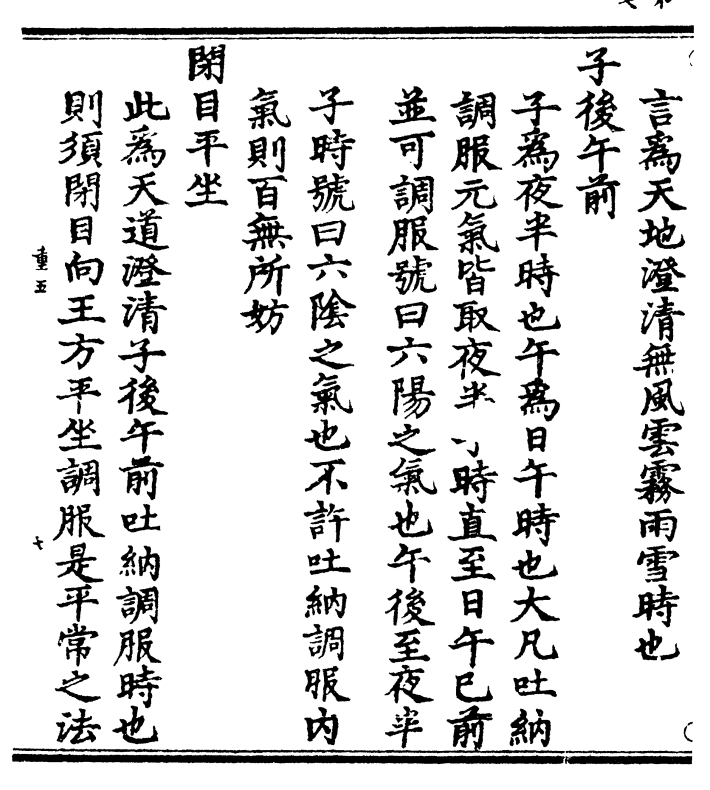 言爲天地澄清無風雲霧雨雪時也
子後午前
子爲夜半時也午爲日午時也大凡吐納
調服元氣皆取夜半子時直至日午巳前
並可調服號曰六陽之氣也午後至夜半
子時號曰六陰之氣也不許吐納調服内
氣則百無所妨
閉目平坐
此爲天道澄清子後午前吐納調服時也
則須閉目向王方平坐調服是平常之法
重五
七